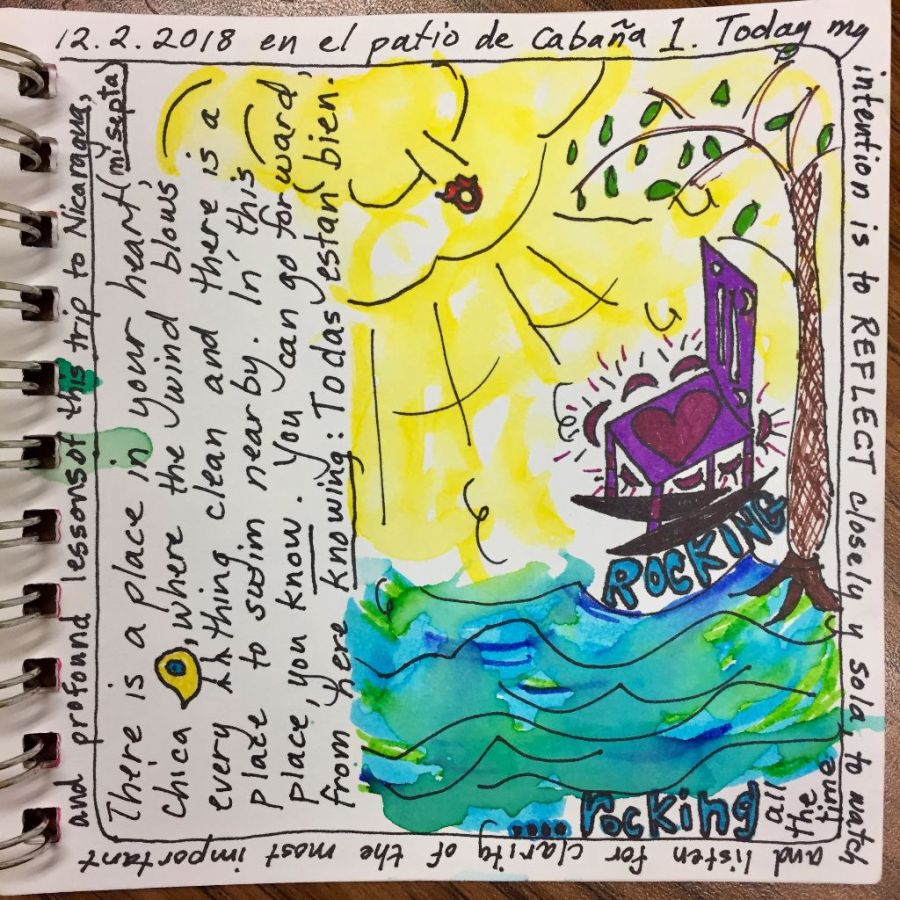 12.2.2018 en el patio de cabaña 1. Today my
intention is to REFLECT closely y sola, to watch
and listen for clarity of the most important
and profound lessons of this trip to Nicaragua,
(mi septa)
There is a place in your heart,
chica, where the wind blows
every thing clean and there is a
place to swim nearby. In this
place, you know. You can go forward,
from here knowing: Todas estan bien.
ROCKING
.... rocking
all
the
time